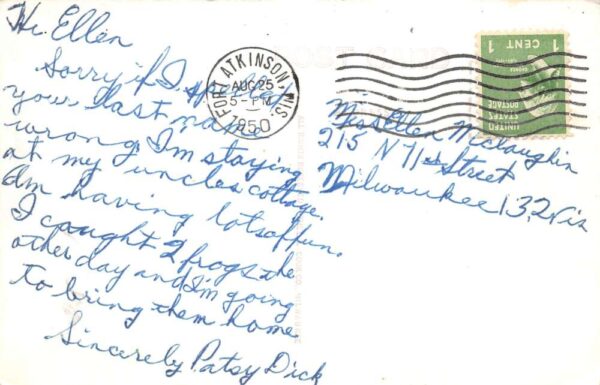 Hi Ellen
Sorry if I spelled
your last name
wrong. I'm staying
at my uncles cottage.
I'm having lots of fun.
I caught 2 frogs the
other day and I'm going
to bring them home.
Sincerely Patsy Dick
FORT ATKINSON, WIS.
AUG 25
5 - PM
1950
1 CENT 1
UNITED
STATES
POSTAGE
Miss Ellen McLaughlin
215 N 71st Street
Milwaukee 13, Wis